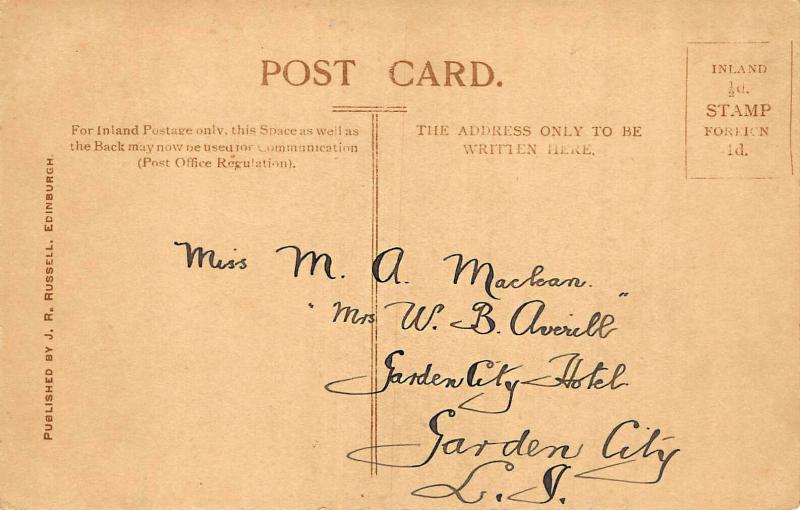 POST CARD.
INLAND
½d.
STAMP
FOREIGN
1d.
For Inland Postage only, this Space as well as
the Back may now be used for Communication
(Post Office Regulation).
THE ADDRESS ONLY TO BE
WRITTEN HERE.
PUBLISHED BY J. R. RUSSELL, EDINBURGH.
Miss M. A. Maclean.
"Mrs W. B. Averill"
Garden City Hotel
Garden City
L. I.